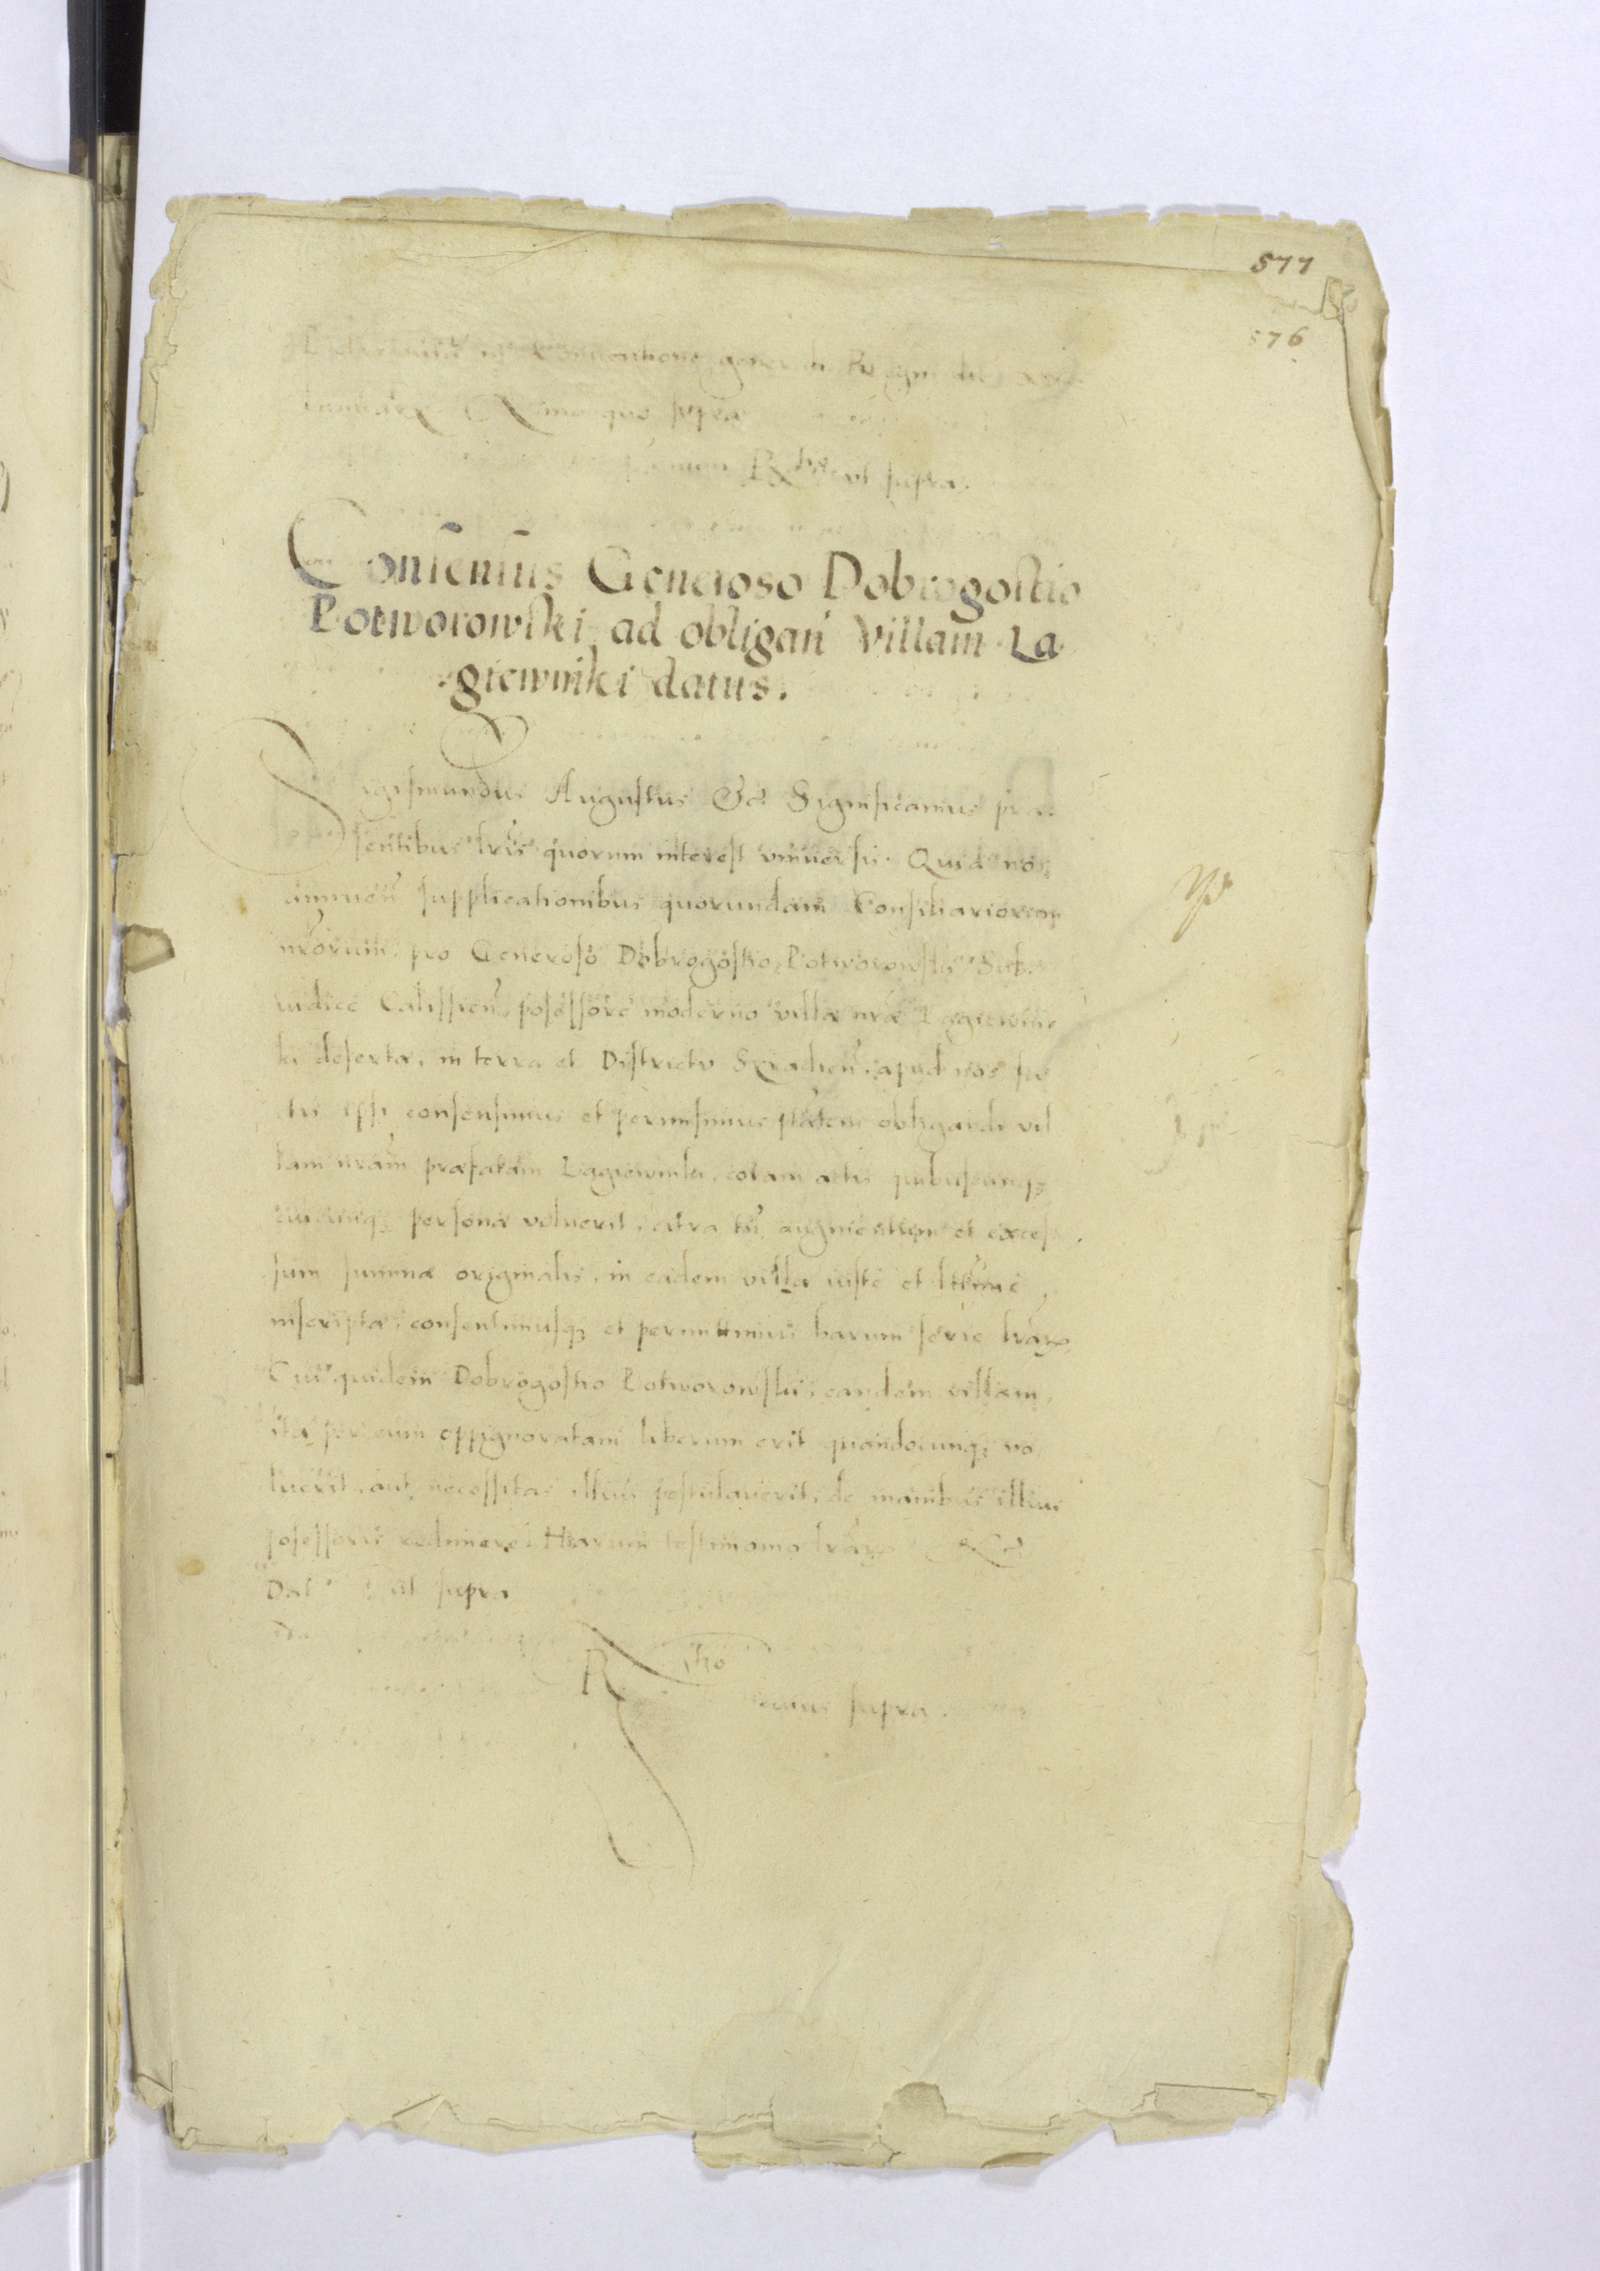 577
576
in Conventione generali Regni die
Anno quo supra
ut supra.
Consensus Generoso Dobrogostio
Potworowski ad obligan̄ villam La
giewniki datus.
Sigismundus Augustus &c̄ Significamus præ
sentibus lr̄is quorum interest vniuersis. Quia nos
annuen̄ supplicationibus quorundam Consiliariorum
nr̄orum, pro Generoso Dobrogostio Potworowski Sub
iudice Calissien̄, possessore moderno villæ nr̄æ Lagiewni
ki desertæ, in terra et Districtu Siradien̄, apud nos fa
ctis ipsi consensimus et permisimus ptātem obligandi vil
lam nr̄am præfatam Lagiewniki, coram actis quibuscunq₃
cuicunq₃ personæ voluerit, citra tn̄ augmentum et exces
sum summæ originalis, in eadem villa iuste et lītime
inscriptæ, consentimusq₃ et permittimus harum serie lr̄arꝝ
Cui quidem Dobrogostio Potworowski, eandem villam,
ita per eum oppignoratam liberum erit quandocunq₃ vo
luerit, aut necessitas illius postulauerit, de manibus illius
possessoris redimere. Harum testimonio lr̄arꝝ &c̄
Dat̄ ut supra
R tio
supra.